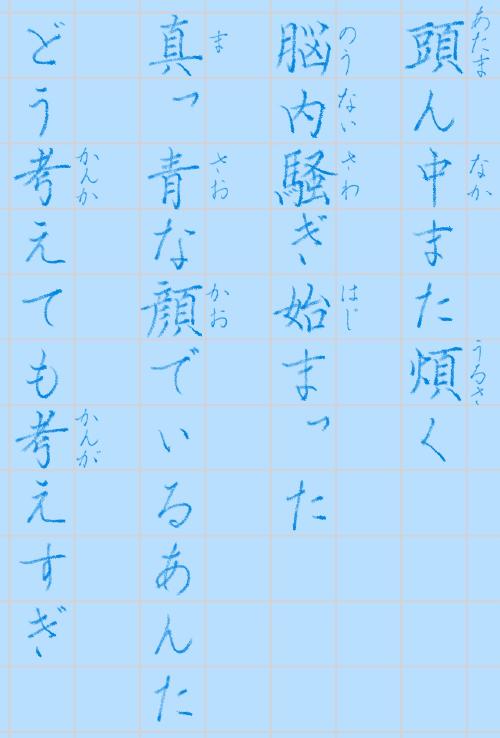 頭ん中また煩く
脳内騒ぎ始まった
真っ青な顔でいるあんた
どう考えても考えすぎ
あたま なか うるさ
のうない さわ はじ
ま さお かお
かんか かんが